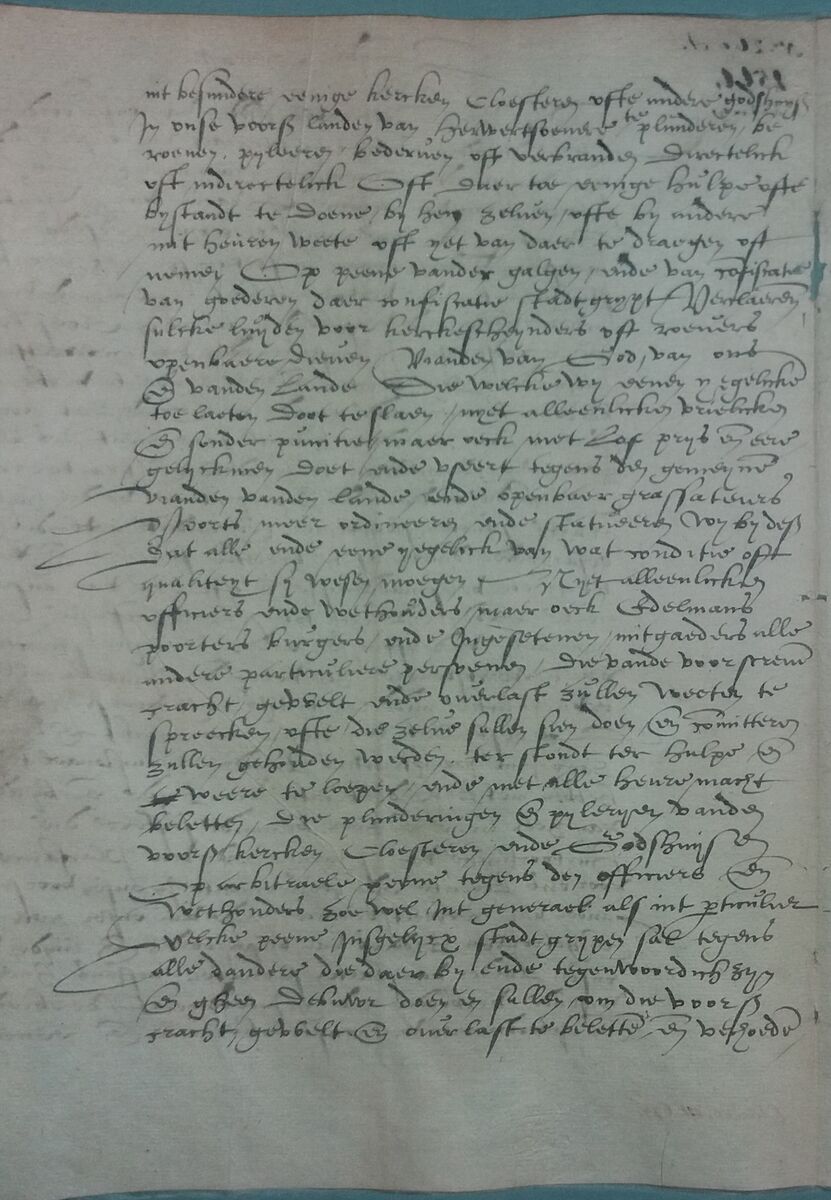 int besundere eenige kercken Cloesteren ofte andere godshuys
In onse voors landen van herwertsovere te plunderen be
roeven, pylleeren, bederven oft verbranden directelick
oft indirectelick Oft daer toe eenige hulpe ofte
bystandt te doene by hen zelven, ofte by andere
mit heuren weete oft yet van daer te draegen oft
nemen Op peene vander galgen, ende van cofiscatie
van goederen daer confiscatie stadt grypt Verclaeren
sulcke luyden voor kerckeschynders oft roevers
openbaere dieven Vianden van God, van ons
En vanden Lande Die welcke wy eenen yegelicke
toe laeten doot te slaen, nyet alleenlicken vrielicken
En sonder punitie maer oeck met Lof prys en eere
gelyckmen doet, ende useert tegens den gemeyne
vianden vanden lande, ende openbaer grassateurs
Voorts meer ordineeren ende statueeren wy by des
dat alle ende eene yegelick van wat conditie oft
qualiteyt sy wesen moegen Nyet alleenlicken
officiers ende wethouders, maer oeck Edelmans
poorters burgers, ende Ingesetenen, mitgaeders alle
andere particuliere persoenen, die vande voorscreven
cracht, gewelt ende overlast zullen weeten te
spreecken, ofte die zelve sullen sien doen, en comitteren
zullen gehouden werden, ter stondt ter hulpe en
weere te loepen, ende met alle heure macht
beletten, die plunderingen En pyleryen vanden
voors kercken Cloesteren ende Godshuysen
Op arbitraele peene tegens den officiers En
wethouders zoe wel int generael als int perticulier
welcke peene Insgelycx stadt grypen sal tegens
alle dandere die daer by ende tegenwoordich zyn
en gheen debuoir doen en sullen om die voors
cracht, gewelt En overlast te belette, en verhoede